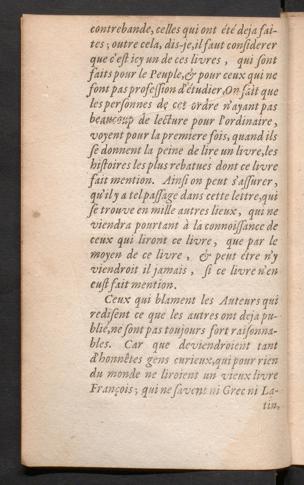 contrebande, celles qui ont été deja fai-
tes; outre cela, dis-je, il faut considerer
que c'est icy un de ces livres, qui sont
faits pour le Peuple, & pour ceux qui ne
font pas profession d'étudier. On sait que
les personnes de cet ordre n'ayant pas
beaucoup de lecture pour l'ordinaire,
voyent pour la premiere fois, quand ils
se donnent la peine de lire un livre, les
histoires les plus rebatues dont ce livre
fait mention. Ainsi on peut s'assurer,
qu'il y a tel passage dans cette lettre, qui
se trouve en mille autres lieux, qui ne
viendra pourtant à la connoissance de
ceux qui liront ce livre, que par le
moyen de ce livre, & peut étre n'y
viendroit il jamais, si ce livre n'en
eust fait mention.
Ceux qui blament les Auteurs qui
redisent ce que les autres ont deja pu-
blié, ne sont pas toujours fort raisonna-
bles. Car que deviendroient tant
d'honnêtes gens curieux, qui pour rien
du monde ne liroient un vieux livre
François; qui ne savent ni Grec ni La-
tin,